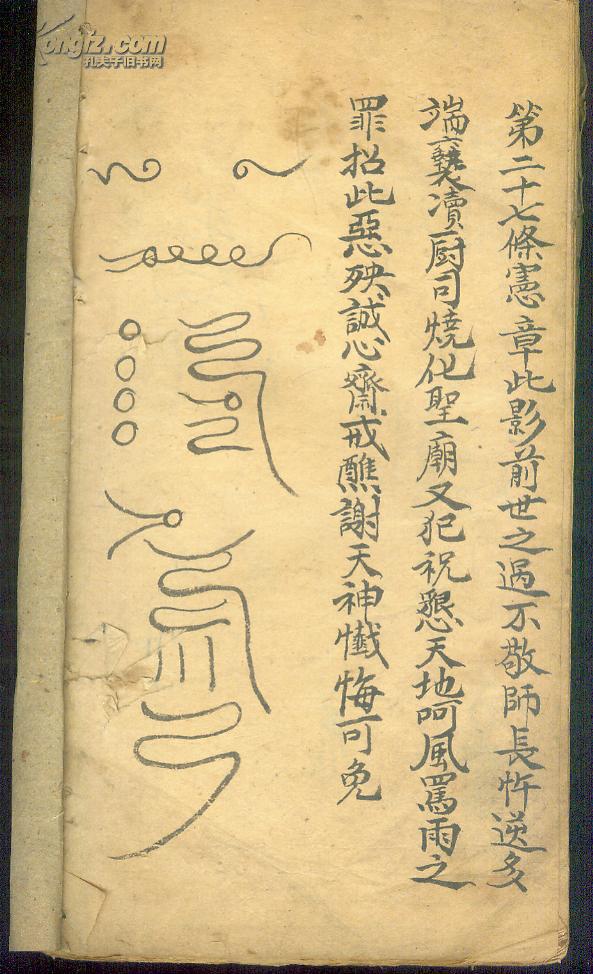 第二十七條憲章此影前世之過不敬師長忤逆多
端褻瀆厨司燒化聖廟又犯祝懇天地呵風罵雨之
罪招此惡殃誠心齋戒醮謝天神懺悔可免
Kongfz.com
孔夫子旧书网